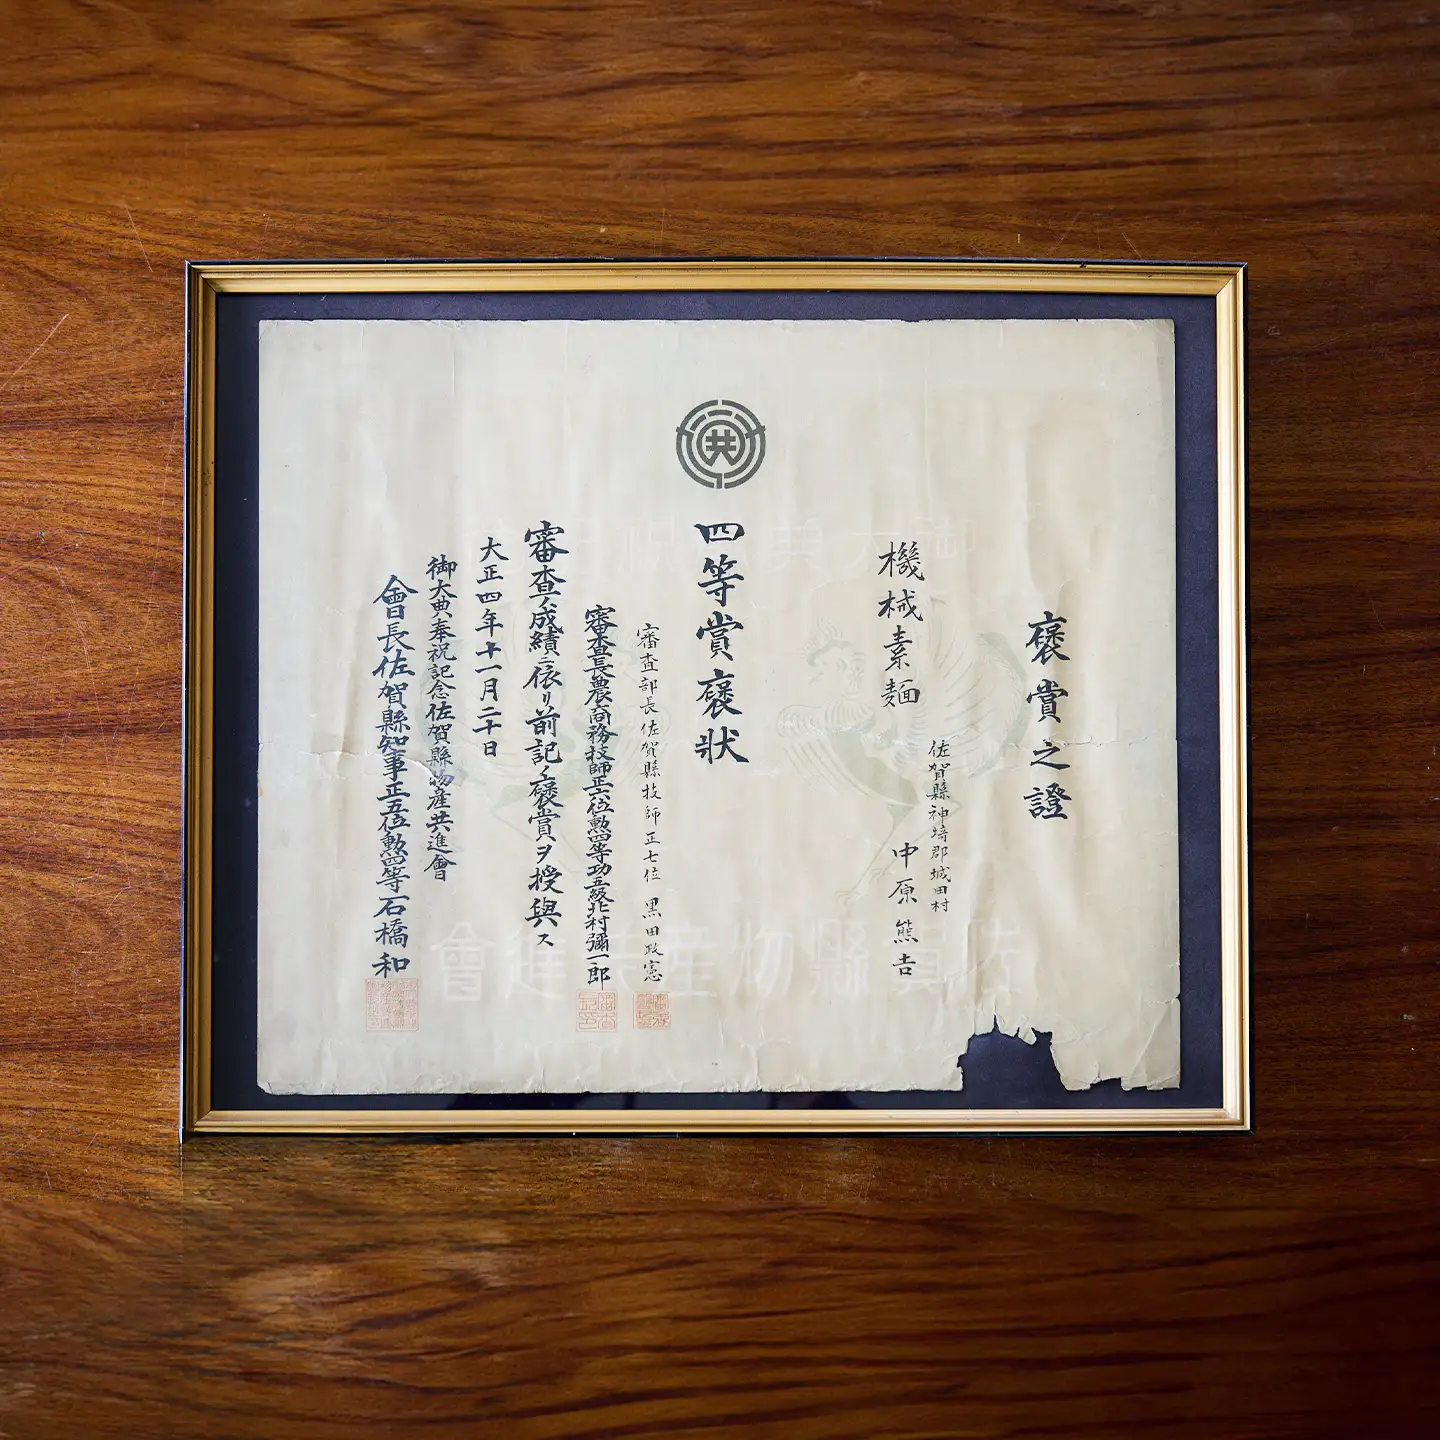 褒賞之證
佐賀縣神埼郡城田村
中原熊吉
機械素麺
共
四等賞褒狀
審査部長佐賀縣技師正七位 黒田政憲
審査長農商務技師正六位勲四等功五級北村彌一郎
審査ノ成績ニ依リ前記ノ褒賞ヲ授與ス
大正四年十一月二十日
御大典奉祝記念佐賀縣物産共進會
會長佐賀縣知事正五位勲四等石橋和
佐賀縣物産共進會